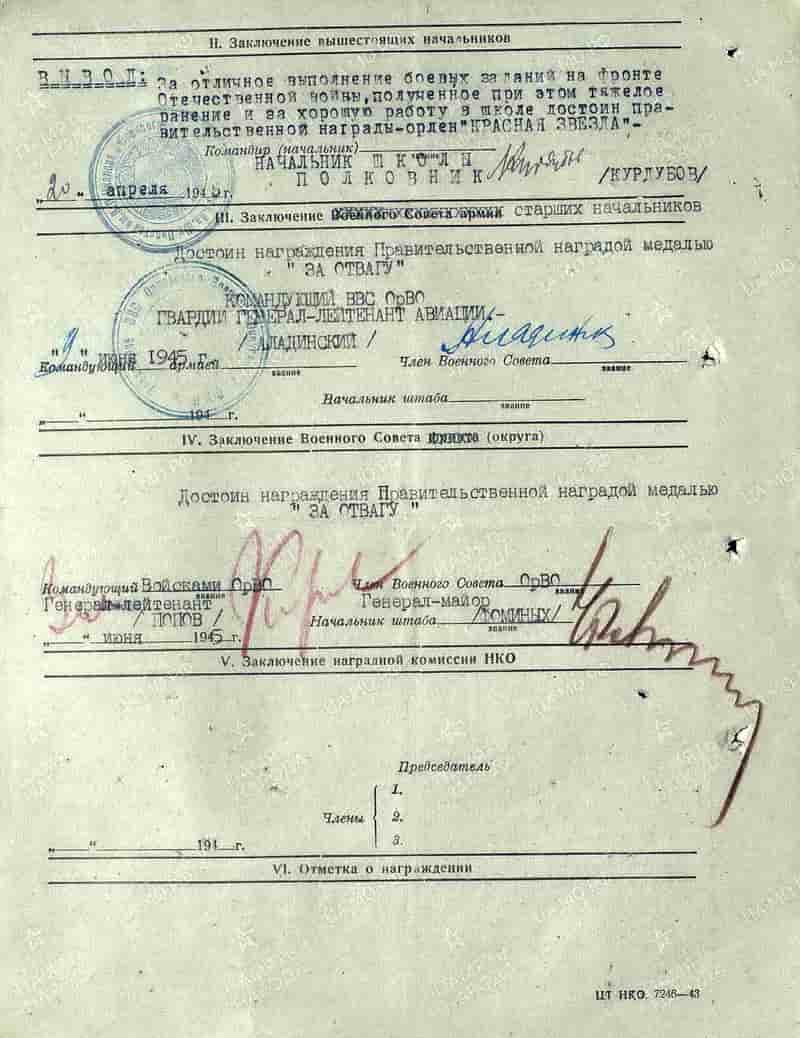 II. Заключение вышестоящих начальников
ВЫВОД: За отличное выполнение боевых заданий на фронте
Отечественной войны,полученное при этом тяжелое
ранение и за хорошую работу в школе достоин пра-
вительственной награды-орден"КРАСНАЯ ЗВЕЗДА"-
Командир (начальник)
НАЧАЛЬНИК ШКОЛЫ
ПОЛКОВНИК /КУРДУБОВ/
„20" апреля 1945г.
III. Заключение Военного Совета армии старших начальников
Достоин награждения Правительственной наградой медалью
" ЗА ОТВАГУ"
КОМАНДУЮЩИЙ ВВС ОрВО
ГВАРДИИ ГЕНЕРАЛ-ЛЕЙТЕНАНТ АВИАЦИИ-
/ АЛАДИНСКИЙ /
"9" июня 1945 г.
Командующий армией Член Военного Совета
звание звание
Начальник штаба
звание
„ " 194 г.
IV. Заключение Военного Совета фронта (округа)
Достоин награждения Правительственной наградой медалью
" ЗА ОТВАГУ "
Командующий Войсками ОрВО Член Военного Совета ОрВО
звание звание
Генерал-лейтенант Генерал-майор
/ ПОПОВ / Начальник штаба /ФОМИНЫХ/
звание
„ " июня 1945 г.
V. Заключение наградной комиссии НКО
Председатель
1.
Члены 2.
3.
„ " 194 г.
VI. Отметка о награждении
ЦТ НКО. 7246—43